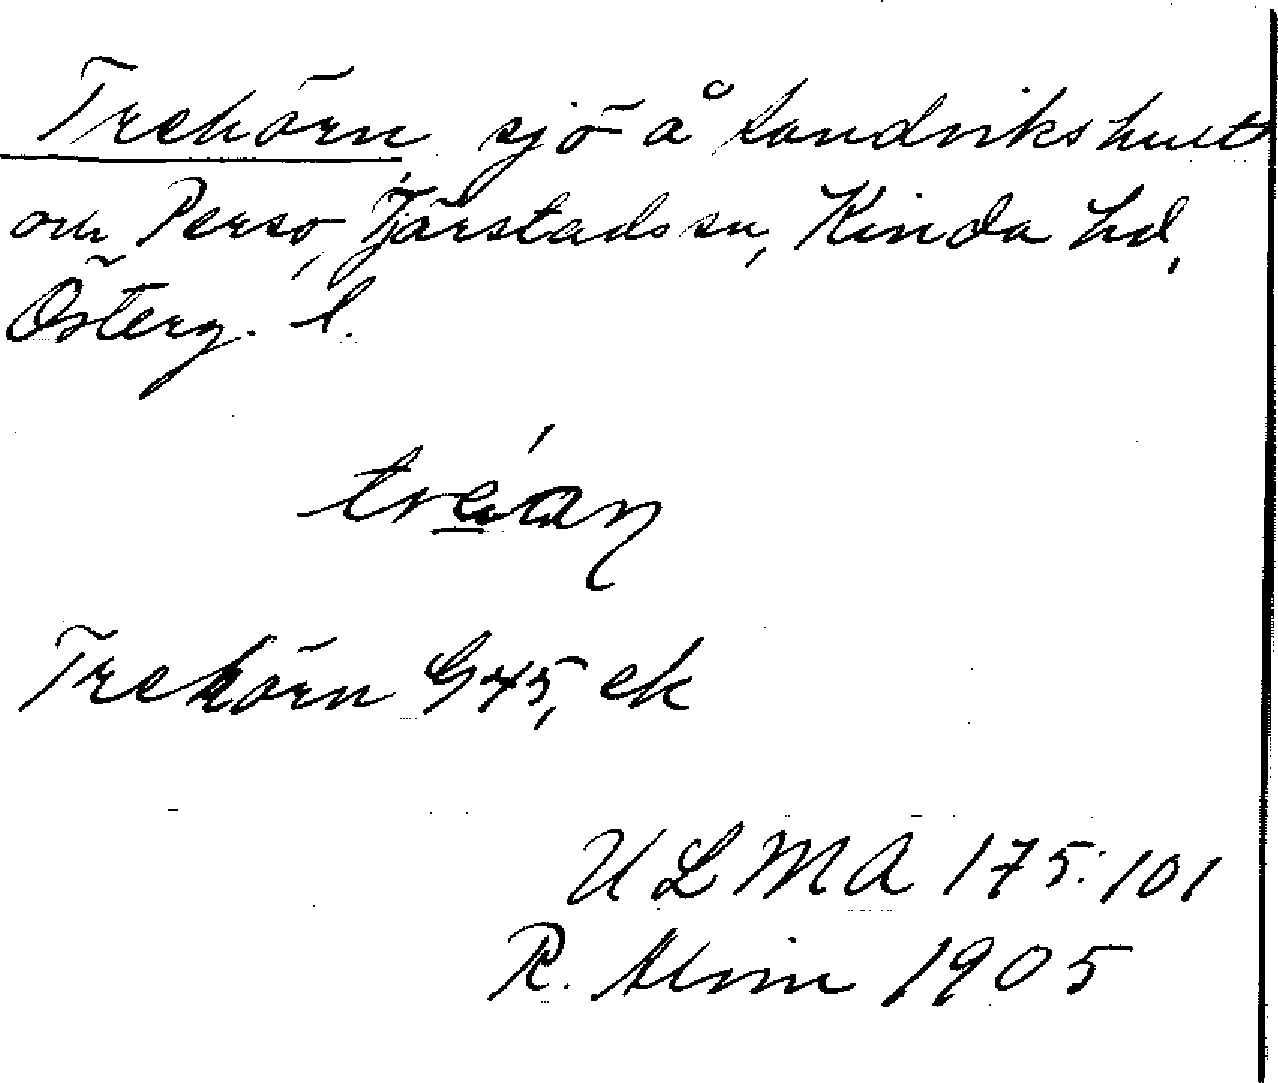 Trehörn, sjö å Sandvikshult
och Persö, Tjärstads sn, Kinda hd,
Österg. l.
Trehörn G45, ek
ULMA 175:101
R. Alm 1905